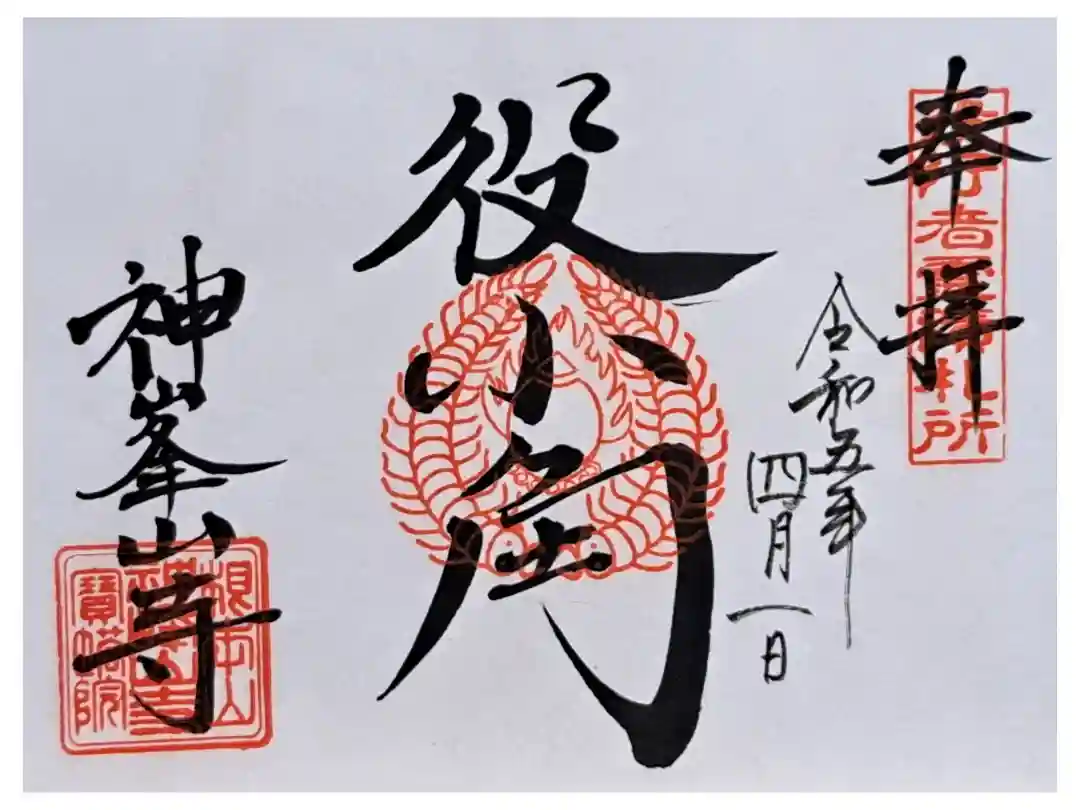 奉拝
役行者霊蹟札所
令和五年
四月一日
役小角
神峯山寺
根本山
神峯山寺
寶塔院